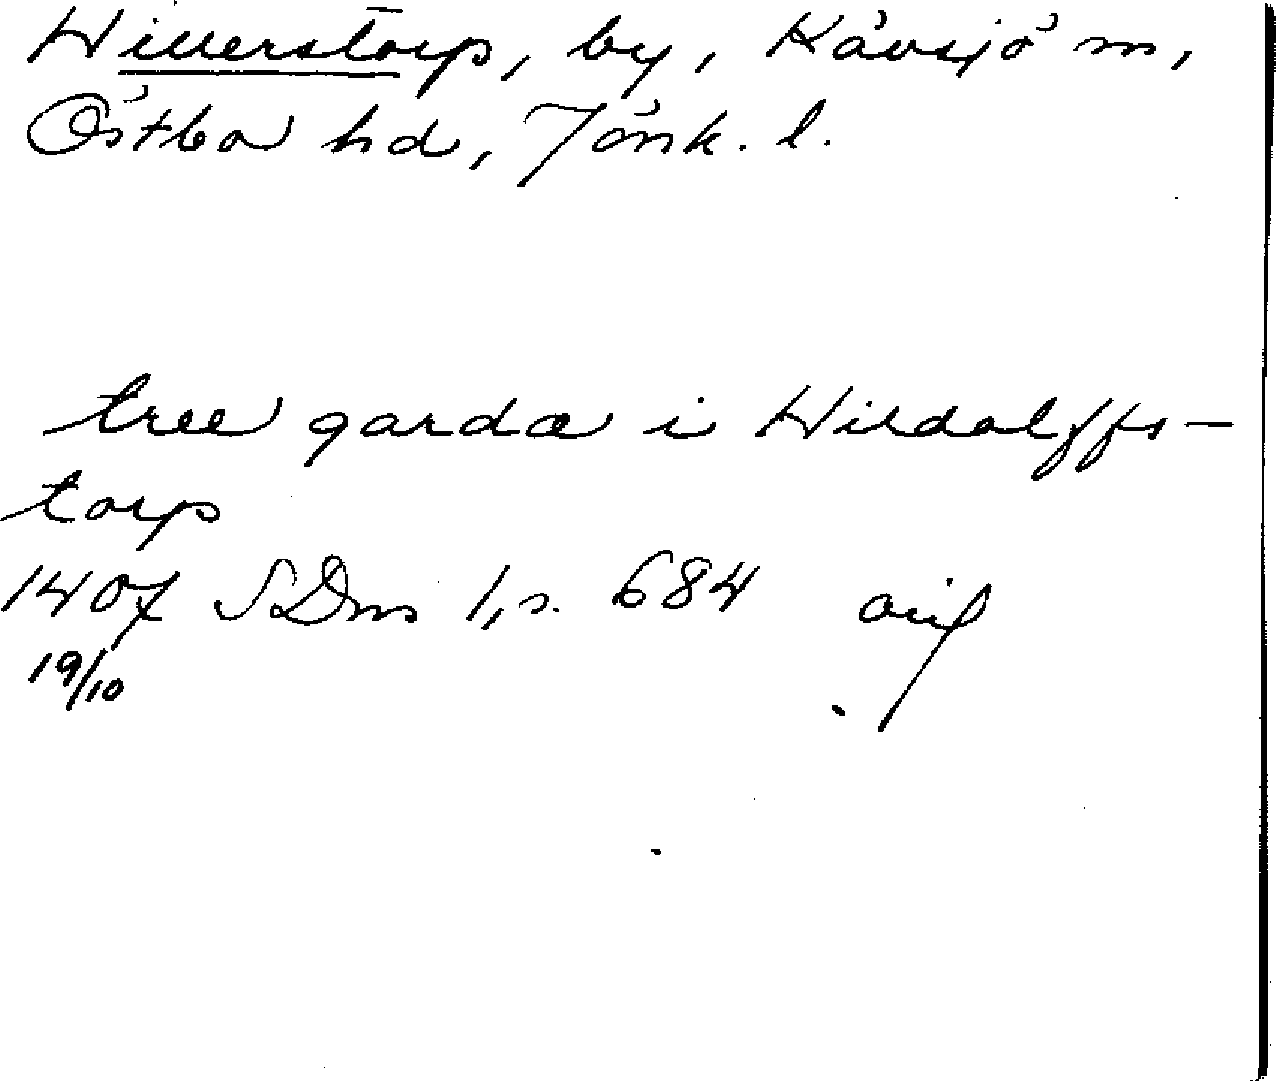 Hillerstorp, by, Kävsjö sn,
Östbo hd, Jönk. l.
tree garda i Hildolffs-
torp
1407 SDns 1, s. 684 orig
19/10